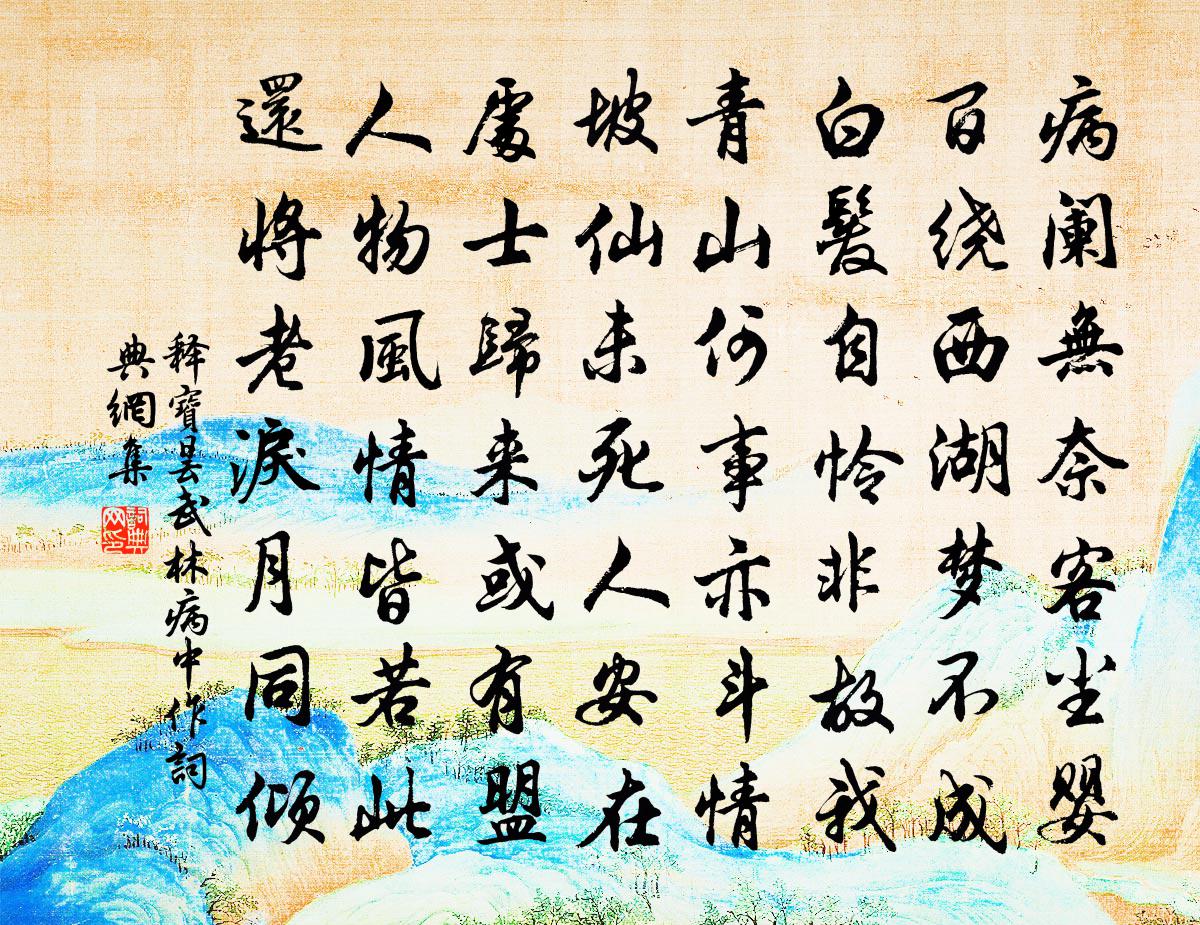 病阑無奈客尘婴
百绕西湖梦不成
白髮自怜非故我
青山何事亦斗情
坡仙未死人安在
處士歸来或有盟
人物風情皆若此
還将老淚月同倾
释寶昙武林病中作詞
典網集
詞典
网